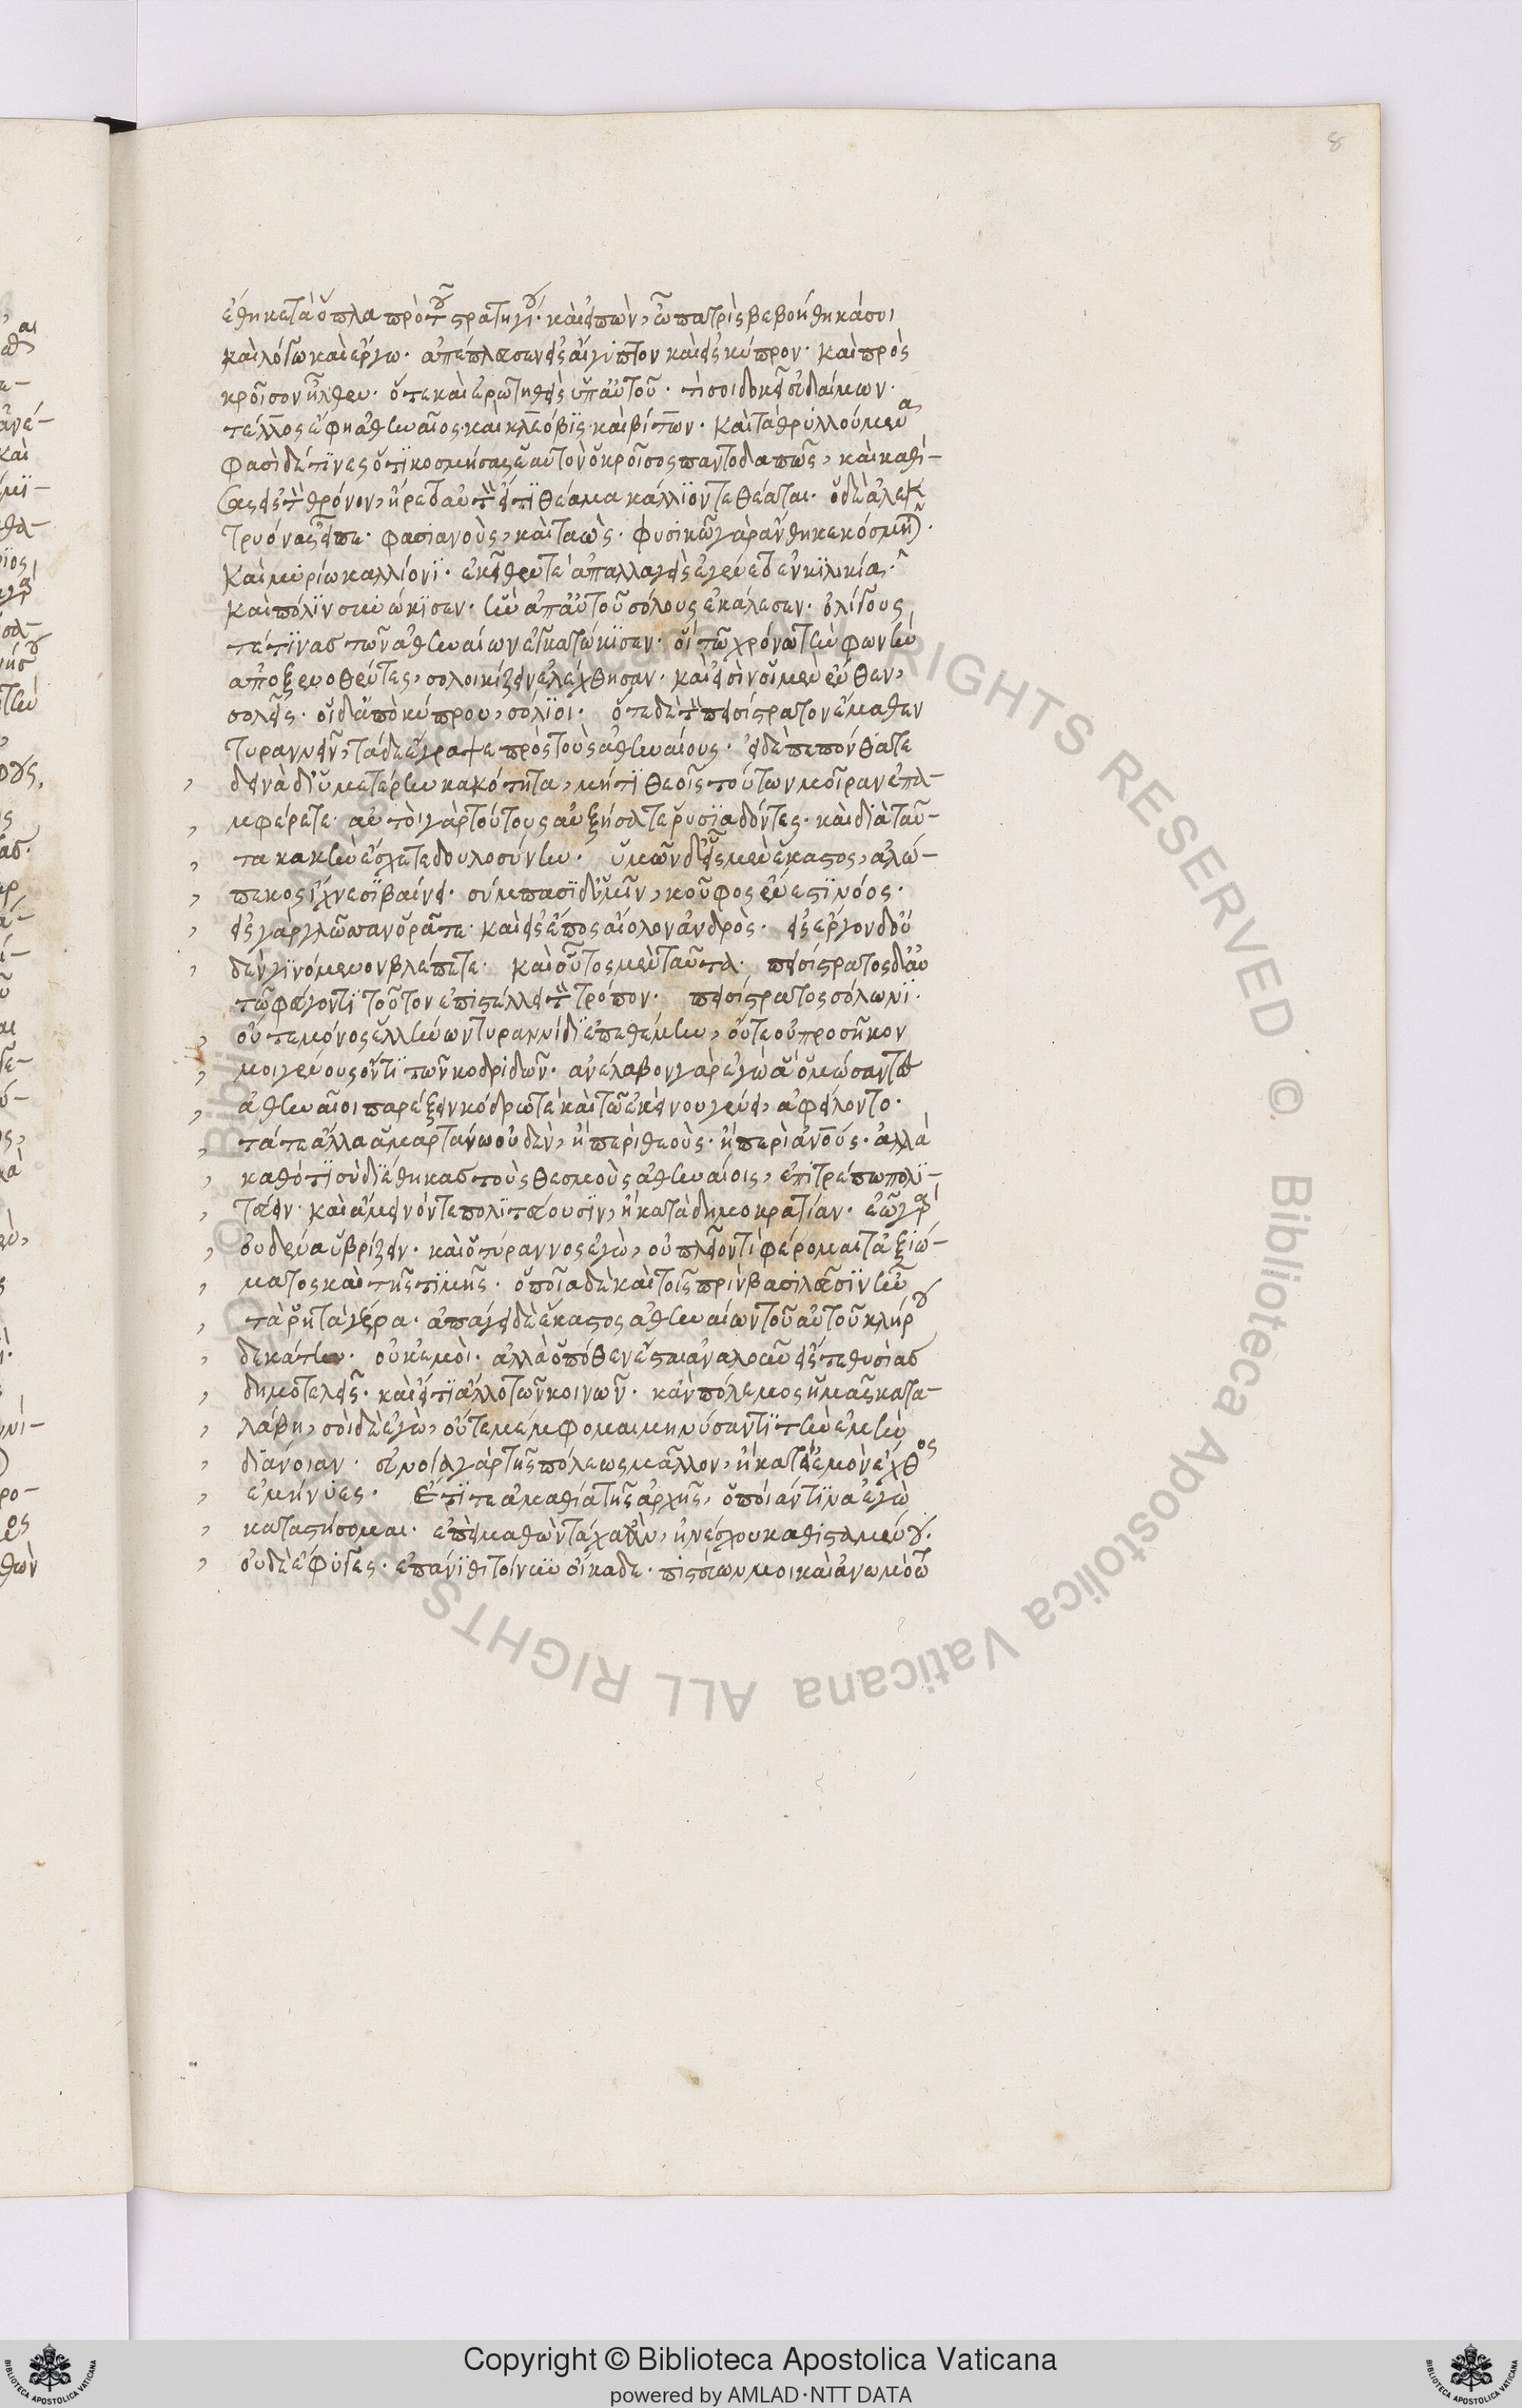 8
ἔθηκε τὰ ὅπλα πρὸ τοῦ στρατηγίου· καὶ εἰπὼν, ὦ πατρὶς βεβοήθηκά σοι
καὶ λόγω καὶ ἔργω· ἀπέπλευσεν εἰς αἴγυπτον καὶ εἰς κύπρον· καὶ πρὸς
κροῖσον ἦλθεν· ὅτε καὶ ἐρωτηθεὶς ὑπ' αὐτοῦ· τίς σοι δοκεῖ εὐδαίμων·
τέλλος ἔφη ἀθηναῖος· καὶ κλέοβις καὶ βίτων· καὶ τὰ θρυλλούμενα
φασὶ δέ τινες ὅτι κοσμήσας ἑαυτὸν ὁ κροῖσος παντοδαπῶς, καὶ καθί-
σας εἰς τὸν θρόνον, ἤρετο αὐτὸν εἴ τι θέαμα κάλλιον τεθέαται· ὁ δὲ ἀλεκ
τρυόνας εἶπε· φασιανοὺς, καὶ ταὼς· φυσικῶ γὰρ ἄνθει κεκόσμηται·
καὶ μυρίω καλλίονι· ἐκεῖθεν τε ἀπαλλαγεὶς ἐγένετο ἐν κιλικία·
καὶ πόλιν συνώκισεν· ἣν ἀπ' αὐτοῦ σόλους ἐκάλεσεν· ὀλίγους
τέ τινας τῶν ἀθηναίων ἐγκατώκισεν· οἳ τῶ χρόνω τὴν φωνὴν
ἀποξενωθέντες, σολοικίζειν ἐλέχθησαν· καὶ εἰσὶν οἱ μὲν ἔνθεν,
σολεῖς· οἱ δ' ἀπὸ κύπρου, σόλιοι· ὅτε δὲ τὸν πεισίστρατον ἔμαθεν
τυραννεῖν, τάδε ἔγραψε πρὸς τοὺς ἀθηναίους· εἰ δὲ πεπόνθατε
δεινὰ δι' ὑμετέρην κακότητα, μή τι θεοῖς τούτων μοῖραν ἐπα-
μφέρετε· αὐτοὶ γὰρ τούτους αὐξήσατε ῥύσια δόντες· καὶ διὰ ταῦ-
τα κακὴν ἔσχετε δουλοσύνην· ὑμῶν δ' εἷς μὲν ἕκαστος, ἀλώ-
πεκος ἴχνεσι βαίνει· σύμπασι δ' ὑμῖν, κοῦφος ἔνεστι νόος·
εἰς γὰρ γλῶσσαν ὁρᾶτε· καὶ εἰς ἔπος αἰόλον ἀνδρὸς· εἰς ἔργον δ' οὐ
δὲν γινόμενον βλέπετε· καὶ οὗτος μὲν ταῦτα· πεισίστρατος δ' αὐ
τῶ φεύγοντι τοῦτον ἐπιστέλλει τὸν τρόπον· πεισίστρατος σόλωνι·
οὔτε μόνος ἑλλήνων τυραννίδι ἐπεθέμην, οὔτε οὐ προσῆκον
μοι γένους ὄντι τῶν κοδριδῶν· ἀνέλαβον γὰρ ἐγὼ ἃ ὀμόσαντες
ἀθηναῖοι παρέξειν κόδρω τε καὶ τῶ ἐκείνου γένει, ἀφείλοντο·
τά τε ἄλλα ἁμαρτάνω οὐδὲν, ἢ περὶ θεοὺς· ἢ περὶ ἀνους· ἀλλὰ
καθότι σὺ διέθηκας τοὺς θεσμοὺς ἀθηναίοις, ἐπιτρέπω πολι-
τεύειν· καὶ ἄμεινόν τε πολιτεύουσιν, ἢ κατὰ δημοκρατίαν· ἐῶ γὰρ
οὐδένα ὑβρίζειν· καὶ ὁ τύραννος ἐγὼ, οὐ πλεῖόν τι φέρομαι τἀξιώ-
ματος καὶ τῆς τιμῆς· ὁποῖα δὲ καὶ τοῖς πρὶν βασιλεῦσιν ἦν
τὰ ῥητὰ γέρα· ἀπάγει δὲ ἕκαστος ἀθηναίων τοῦ αὐτοῦ κλήρου
δεκάτην· οὐκ ἐμοὶ· ἀλλὰ ὁπόθεν ἔσται ἀναλοῦν εἴς τε θυσίας
δημοτελεῖς· καὶ εἴ τι ἄλλο τῶν κοινῶν· κἂν πόλεμος ἡμᾶς κατα-
λάβη, σοὶ δὲ ἐγὼ, οὔτε μέμφομαι μηνύσαντι τὴν ἐμὴν
διάνοιαν· εὐνοία γὰρ τῆς πόλεως μᾶλλον, ἢ κατὰ ἐμὸν ἔχθος
ἐμήνυες· ἔτι τε ἀμαθία τῆς ἀρχῆς, ὁποίαν τινὰ ἐγὼ
καταστήσομαι· ἐπεὶ μαθὼν τάχ' ἂν, ἠνέσχου καθισταμένου·
οὐδὲ ἔφυγες· ἐπάνιθι τοίνυν οἴκαδε· πιστεύων μοι καὶ ἀνωμότω
Copyright © Biblioteca Apostolica Vaticana
powered by AMLAD·NTT DATA
© Biblioteca Apostolica Vaticana ALL RIGHTS RESERVED